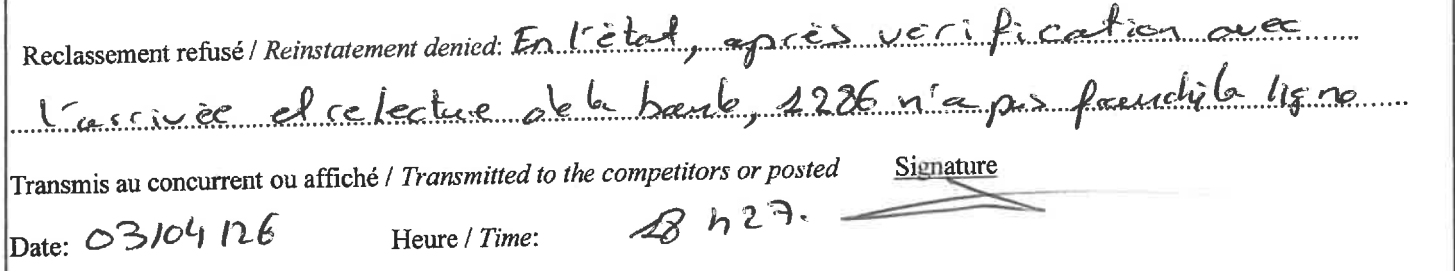 Reclassement refusé / Reinstatement denied: En l'état, après vérification avec
l'arrivée et relecture de la bande, 1286 n'a pas franchi la ligne
Transmis au concurrent ou affiché / Transmitted to the competitors or posted Signature
Date: 03/04/26 Heure / Time: 18 h27.